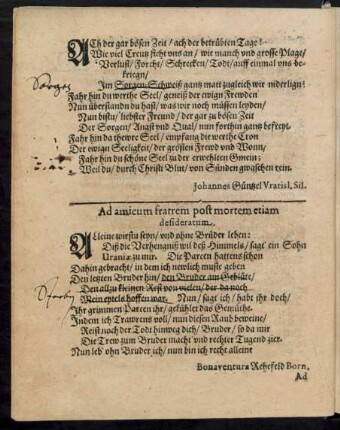 ACh der gar bösen Zeit / ach der betrübten Tage!
Wie viel Creutz steht uns an / wie manch vnd grosse Plage /
Verlust / Forcht / Schrecken / Todt / auff einmal vns be-
kriegn /
Im Sorgen-Schweiß gantz matt zugleich wir niderlign!
Sorges
Fahr hin du werthe Seel / geneiß der ewign Frewden
Nun überstandn du hast / was wir noch müssen leyden /
Nun bistu / liebster Freund / der gar zu bösen Zeit
Der Sorgen / Angst vnd Qual / nun forthin gantz befreyt.
Fahr hin da thewre Seel / empfang die werthe Cron
Der ewign Seeligkeit / der grösten Frewd vnd Wonn /
Fahr hin du schöne Seel zu der erwehlten Gmein:
Weil du / durch Christi Blut / von Sünden gwaschen rein.
Johannes Güntzel Vratisl. Sil.
Ad amicum fratrem post mortem etiam
desideratum.
ALleine wirstu seyn / vnd ohne Brüder leben:
Diß die Verhengnüß wil deß Himmels / sagt' ein Sohn
Uraniæ zu mir. Die Parcen hattens schon
Dahin gebracht / in dem ich newlich muste geben
Den letzten Bruder hin / den Bruder am Geblüte /
Den allzu kleinen Rest von vielen / der da noch
Mein eptels hoffen war. Nun / sagt ich / habt ihr doch /
Ihr grimmen Parcen ihr / gekühlet das Gemüthe.
Indem ich Trawrens voll / nun diesen Raub beweine /
Reist noch der Todt hinweg dich / Bruder / so da mir
Die Trew zum Bruder macht vnd rechter Tugend zier.
Nun leb' ohn Bruder ich / nun bin ich recht alleine
Bonaventura Rehefeld Born.
Ad